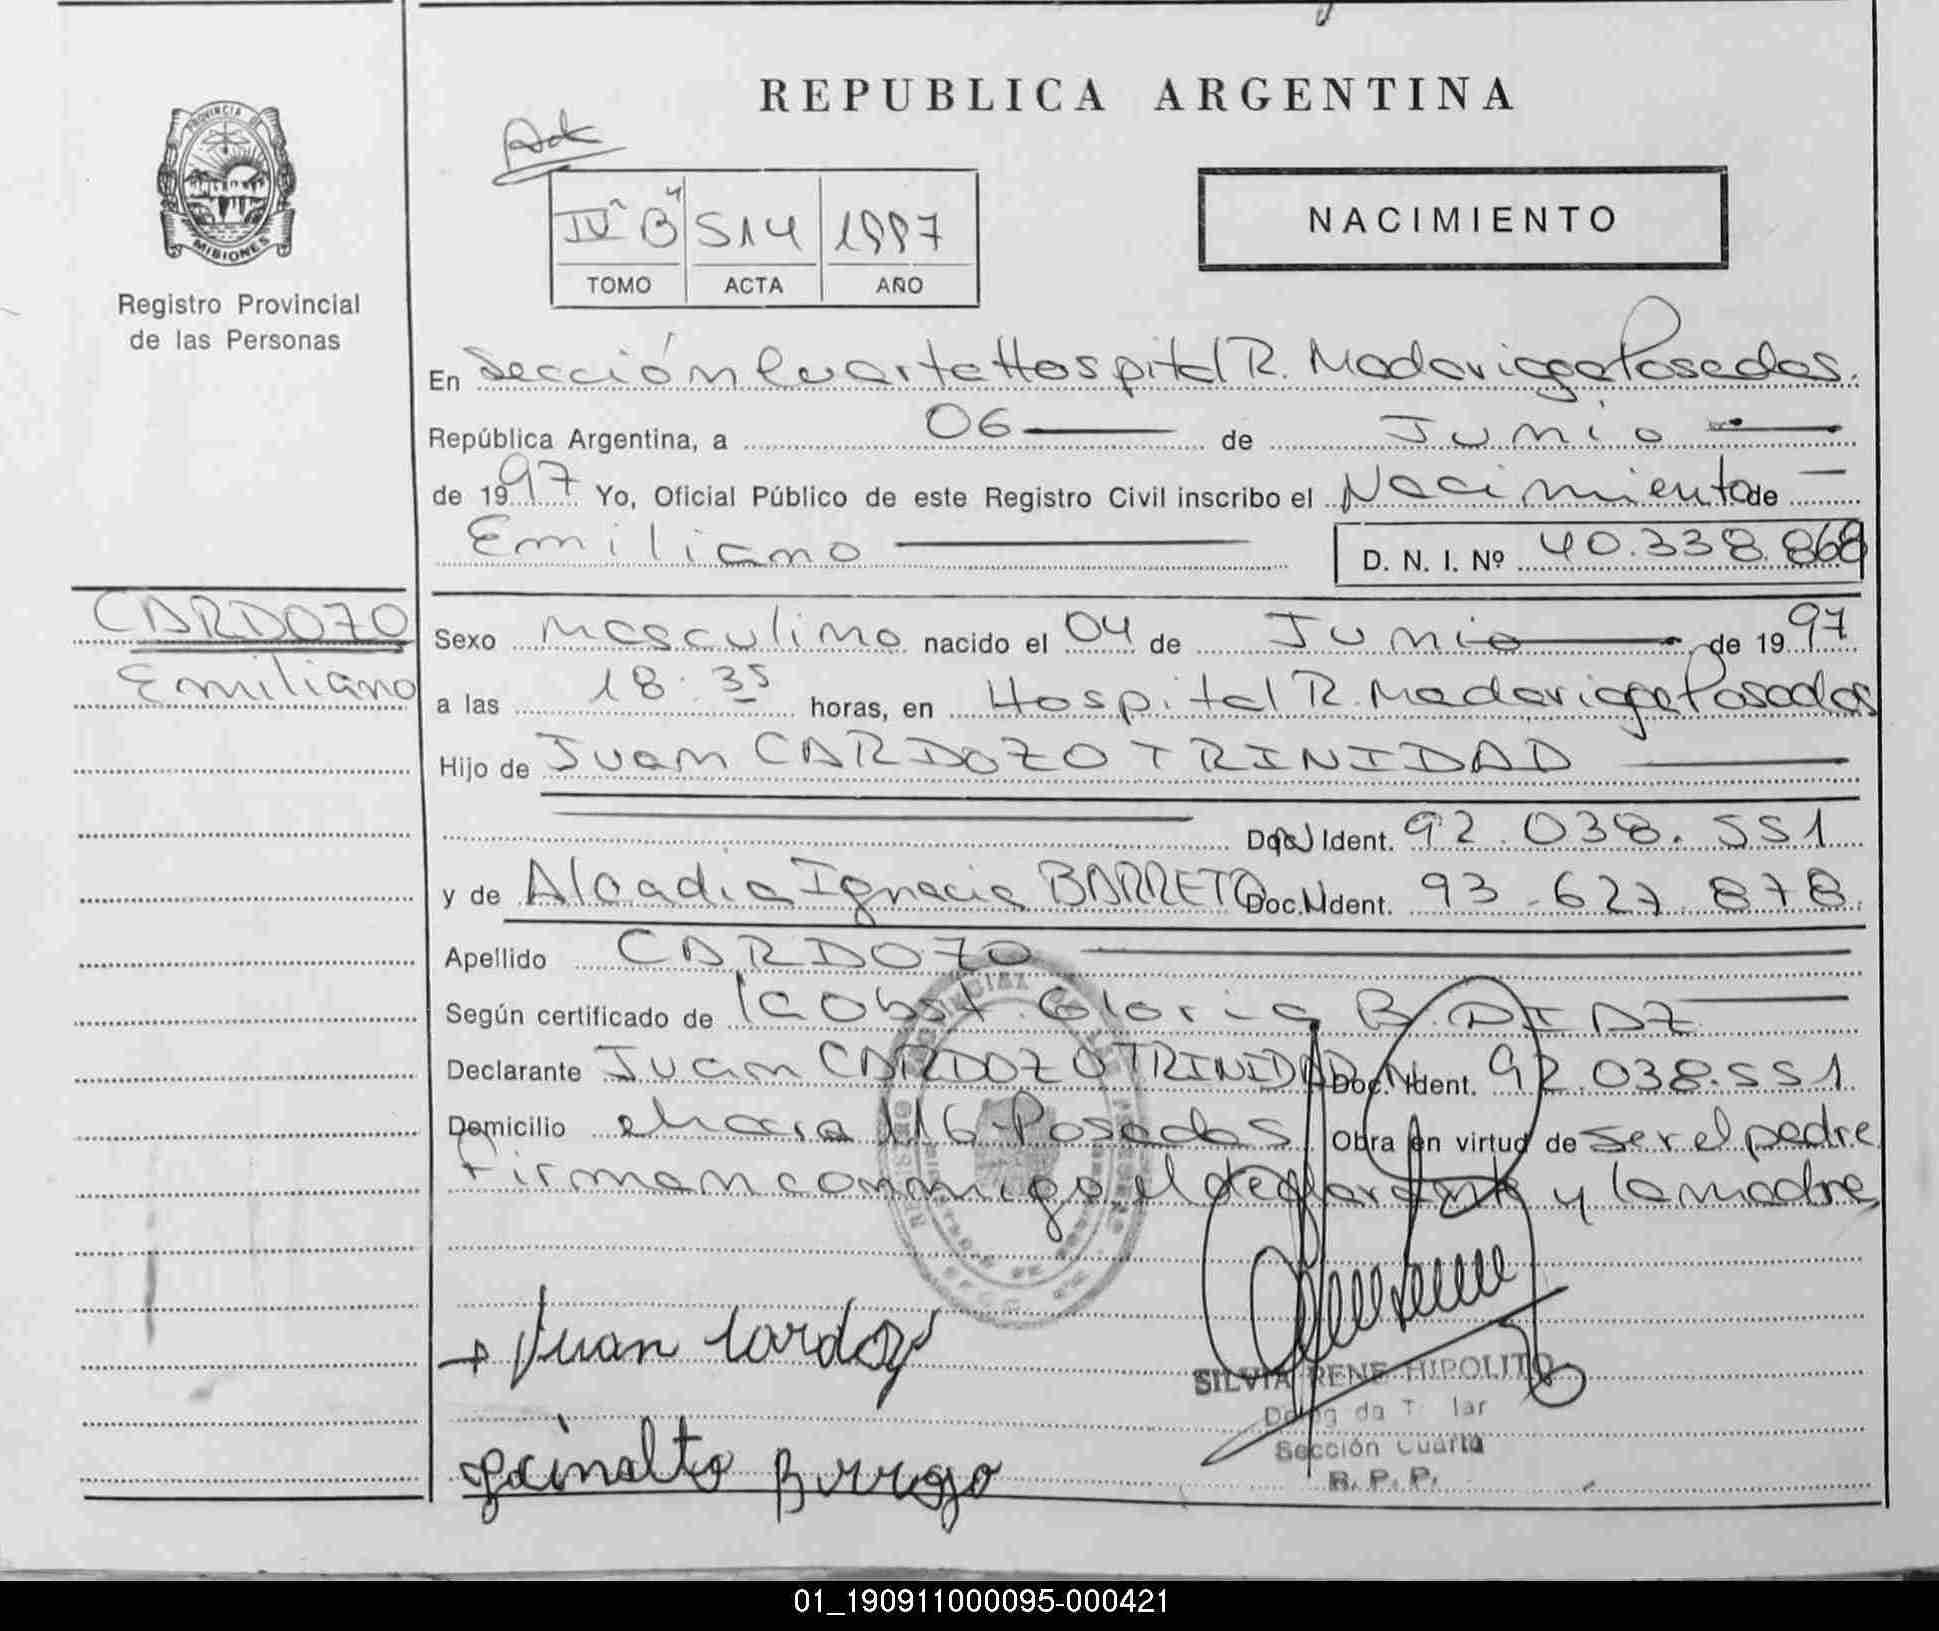 REPUBLICA ARGENTINA
PROVINCIA DE
MISIONES
Registro Provincial
de las Personas
IVº "B" 514 1997
TOMO ACTA AÑO
NACIMIENTO
En Sección Cuarta Hospital R. Madariaga Posadas.
República Argentina, a 06 de Junio
de 1997 Yo, Oficial Público de este Registro Civil inscribo el Nacimiento de
Emiliano D. N. I. Nº 40.338.868
CARDOZO
Emiliano
Sexo masculino nacido el 04 de Junio de 1997
a las 18:35 horas, en Hospital R. Madariaga Posadas
Hijo de Juan CARDOZO TRINIDAD
Doc. Ident. 92.038.551
y de Ignacia BARRETO Doc. Ident. 93.627.878.
Apellido CARDOZO
Según certificado de Obst. Gloria B. DIAZ
Declarante Juan CARDOZO TRINIDAD Doc. Ident. 92.038.551
Domicilio chacra 116 Posadas Obra en virtud de ser el padre
Firman conmigo el declarante y la madre
Juan Cardozo
SILVIA RENE HIPOLITO
Sección Cuarta
R. P. P.
01_190911000095-000421